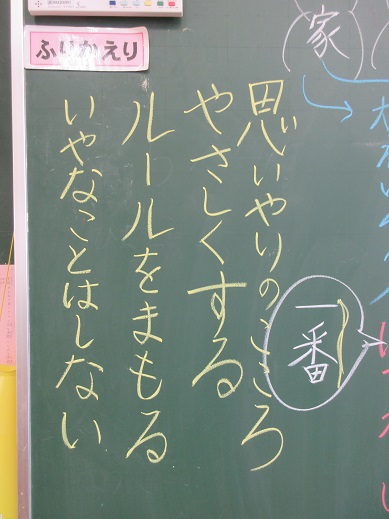 家
一番
思いやりのこころ
やさしくする
ルールをまもる
いやなことはしない
ふりかえり